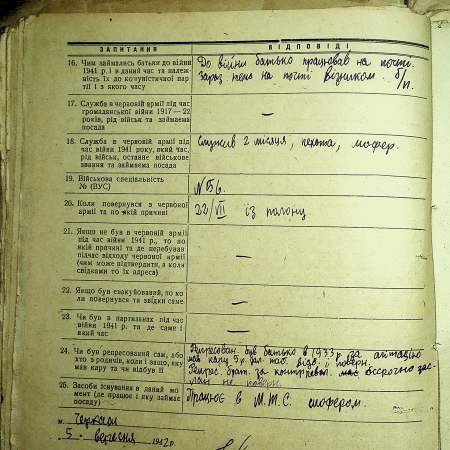 ЗАПИТАННЯ
ВІДПОВІДІ
16. Чим займались батьки до війни
1941 р. і в даний час та належ-
ність їх до комуністичної пар-
тії і з якого часу
До війни батько працював на пошті.
зараз теж на пошті візником. б/п.
17. Служба в червоній армії під час
громадянської війни 1917—22
років, рід військ та займаема
посада
—
18. Служба в червоній армії під
час війни 1941 року, який час,
рід військ, останне військове
звання та займаема посада
Служив 2 місяця, пехота, шофер.
19. Військова спеціальність
№ (ВУС)
№56.
20. Коли повернувся з червоної
армії та по якій причині
22/VII із полону.
21. Якщо не був в червоній армії
під час війни 1941 р., то по
якій причині та де перебував
підчас відходу червоної армії
(чим може підтвердити, а коли
свідками то їх адреса)
—
22. Якщо був евакуйований, по ко-
ли повернувся та звідки саме
—
23. Чи був в партизанах під час
війни 1941 р. та де саме і
який час
—
24. Чи був репресований сам, або
хто з родичів, коли і защо, яку
мав кару та чи відбув її
Репресован. був батько в 1933 р. за агітацію
мав кару 5 р. і поверн.
Репрес. брат. за контррев. безсрочно зас-
лан не поверн.
25. Засоби існування в даний мо-
мент (де працює і яку займає
посаду)
Працює в М.Т.С. шофером.
м. Черкаси
„5„ вересня 1942 р.